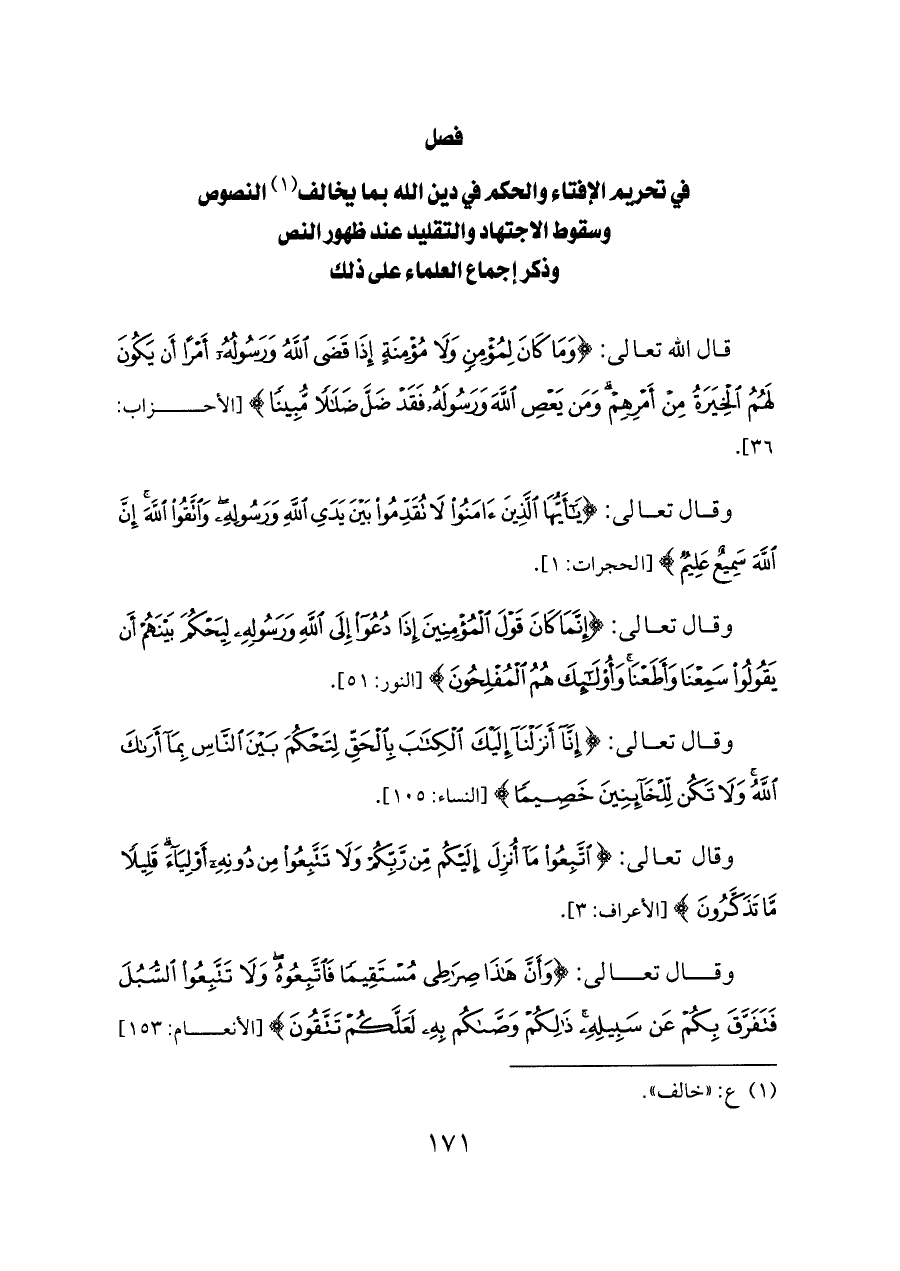 فصل
في تحريم الإفتاء والحكم في دين الله بما يخالف(١) النصوص
وسقوط الاجتهاد والتقليد عند ظهور النص
وذكر إجماع العلماء على ذلك
قال الله تعالى: ﴿وَمَا كَانَ لِمُؤْمِنٍ وَلَا مُؤْمِنَةٍ إِذَا قَضَى ٱللَّهُ وَرَسُولُهُۥٓ أَمْرًا أَن يَكُونَ
لَهُمُ ٱلْخِيَرَةُ مِنْ أَمْرِهِمْ ۗ وَمَن يَعْصِ ٱللَّهَ وَرَسُولَهُۥ فَقَدْ ضَلَّ ضَلَٰلًا مُّبِينًا﴾ [الأحـــزاب:
٣٦].
وقـال تعـالى: ﴿يَٰٓأَيُّهَا ٱلَّذِينَ ءَامَنُوا۟ لَا تُقَدِّمُوا۟ بَيْنَ يَدَىِ ٱللَّهِ وَرَسُولِهِۦ ۖ وَٱتَّقُوا۟ ٱللَّهَ ۚ إِنَّ
ٱللَّهَ سَمِيعٌ عَلِيمٌ﴾ [الحجرات: ١].
وقـال تعـالى: ﴿إِنَّمَا كَانَ قَوْلَ ٱلْمُؤْمِنِينَ إِذَا دُعُوٓا۟ إِلَى ٱللَّهِ وَرَسُولِهِۦ لِيَحْكُمَ بَيْنَهُمْ أَن
يَقُولُوا۟ سَمِعْنَا وَأَطَعْنَا ۚ وَأُو۟لَٰٓئِكَ هُمُ ٱلْمُفْلِحُونَ﴾ [النور: ٥١].
وقـال تعـالى: ﴿إِنَّآ أَنزَلْنَآ إِلَيْكَ ٱلْكِتَٰبَ بِٱلْحَقِّ لِتَحْكُمَ بَيْنَ ٱلنَّاسِ بِمَآ أَرَىٰكَ
ٱللَّهُ ۚ وَلَا تَكُن لِّلْخَآئِنِينَ خَصِيمًا﴾ [النساء: ١٠٥].
وقال تعـالى: ﴿ٱتَّبِعُوا۟ مَآ أُنزِلَ إِلَيْكُم مِّن رَّبِّكُمْ وَلَا تَتَّبِعُوا۟ مِن دُونِهِۦٓ أَوْلِيَآءَ ۗ قَلِيلًا
مَّا تَذَكَّرُونَ﴾ [الأعراف: ٣].
وقـــال تعـــالى: ﴿وَأَنَّ هَٰذَا صِرَٰطِى مُسْتَقِيمًا فَٱتَّبِعُوهُ ۖ وَلَا تَتَّبِعُوا۟ ٱلسُّبُلَ
فَتَفَرَّقَ بِكُمْ عَن سَبِيلِهِۦ ۚ ذَٰلِكُمْ وَصَّىٰكُم بِهِۦ لَعَلَّكُمْ تَتَّقُونَ﴾ [الأنعـــام: ١٥٣]
(١) ع: «خالف».
١٧١